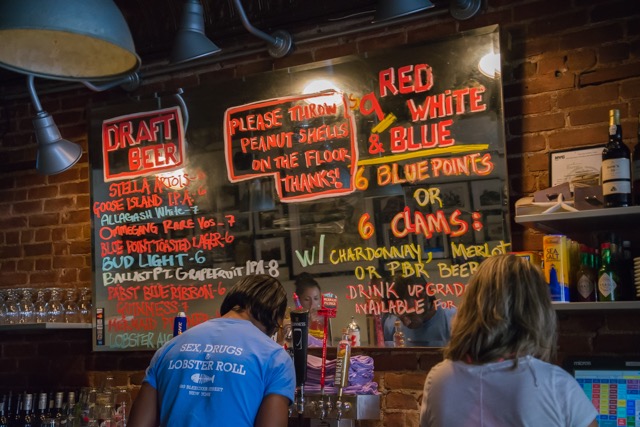 DRAFT
BEER
STELLA ARTOIS
GOOSE ISLAND I.P.A.
ALLAGASH WHITE-7
OMMEGANG RARE VOS-7
BLUE POINT TOASTED LAGER-6
BUD LIGHT-6
BALLAST PT GRAPEFRUIT IPA-8
PABST BLUE RIBBON-6
GUINNESS
LOBSTER
PLEASE THROW
PEANUT SHELLS
ON THE FLOOR
THANKS!
$9 RED
WHITE
& BLUE
6 BLUE POINTS
OR
6 CLAMS:
W/ CHARDONNAY, MERLOT
OR PBR BEER
DRINK UPGRADE
AVAILABLE FOR
SEX, DRUGS
LOBSTER ROLL
NEW YORK